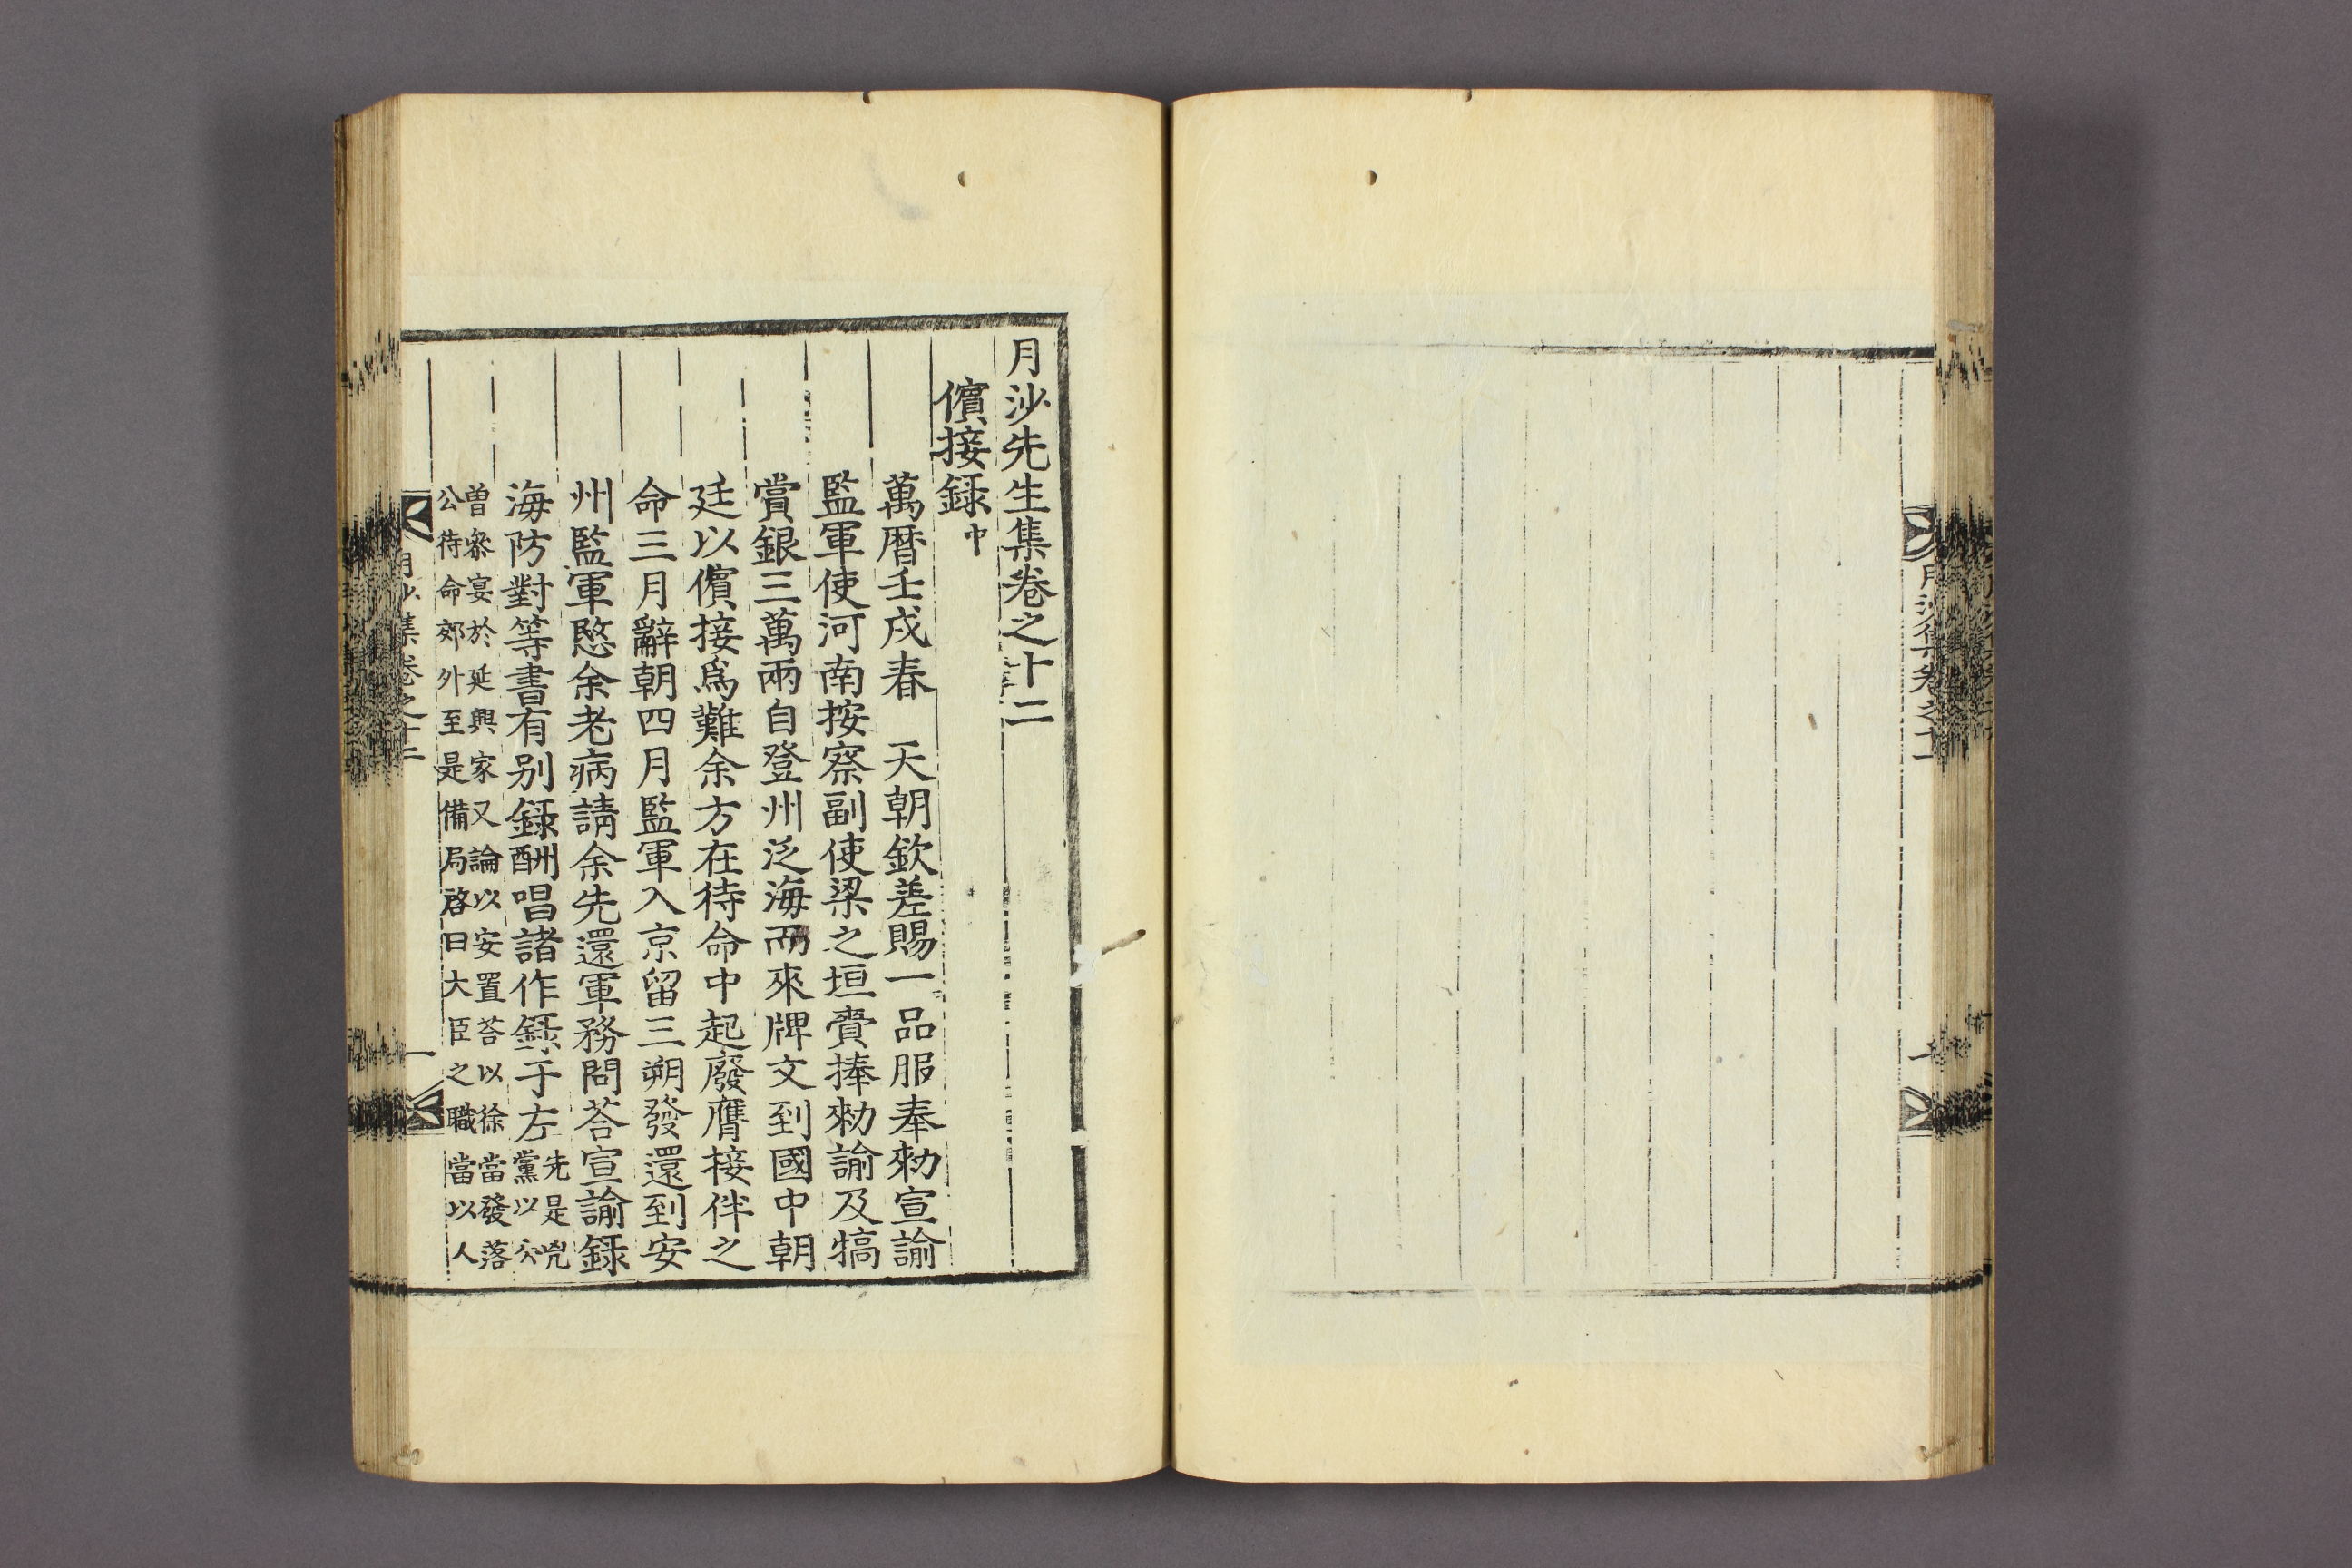 月沙先生集卷之十二
儐接録中
萬曆壬戌春 天朝欽差賜一品服奉勑宣諭
監軍使河南按察副使梁之垣賫捧勑諭及犒
賞銀三萬兩自登州泛海而來牌文到國中朝
廷以儐接爲難余方在待命中起廢膺接伴之
命三月辭朝四月監軍入京留三朔發還到安
州監軍愍余老病請余先還軍務問荅宣諭錄
海防對等書有別錄酬唱諸作錄于左
先是兇
黨以公
曽叅宴於延興家又論以安置荅以徐當發落
公待命郊外至是備局啓曰大臣之職當以人
月沙集卷之十二
一
月沙集卷之十一